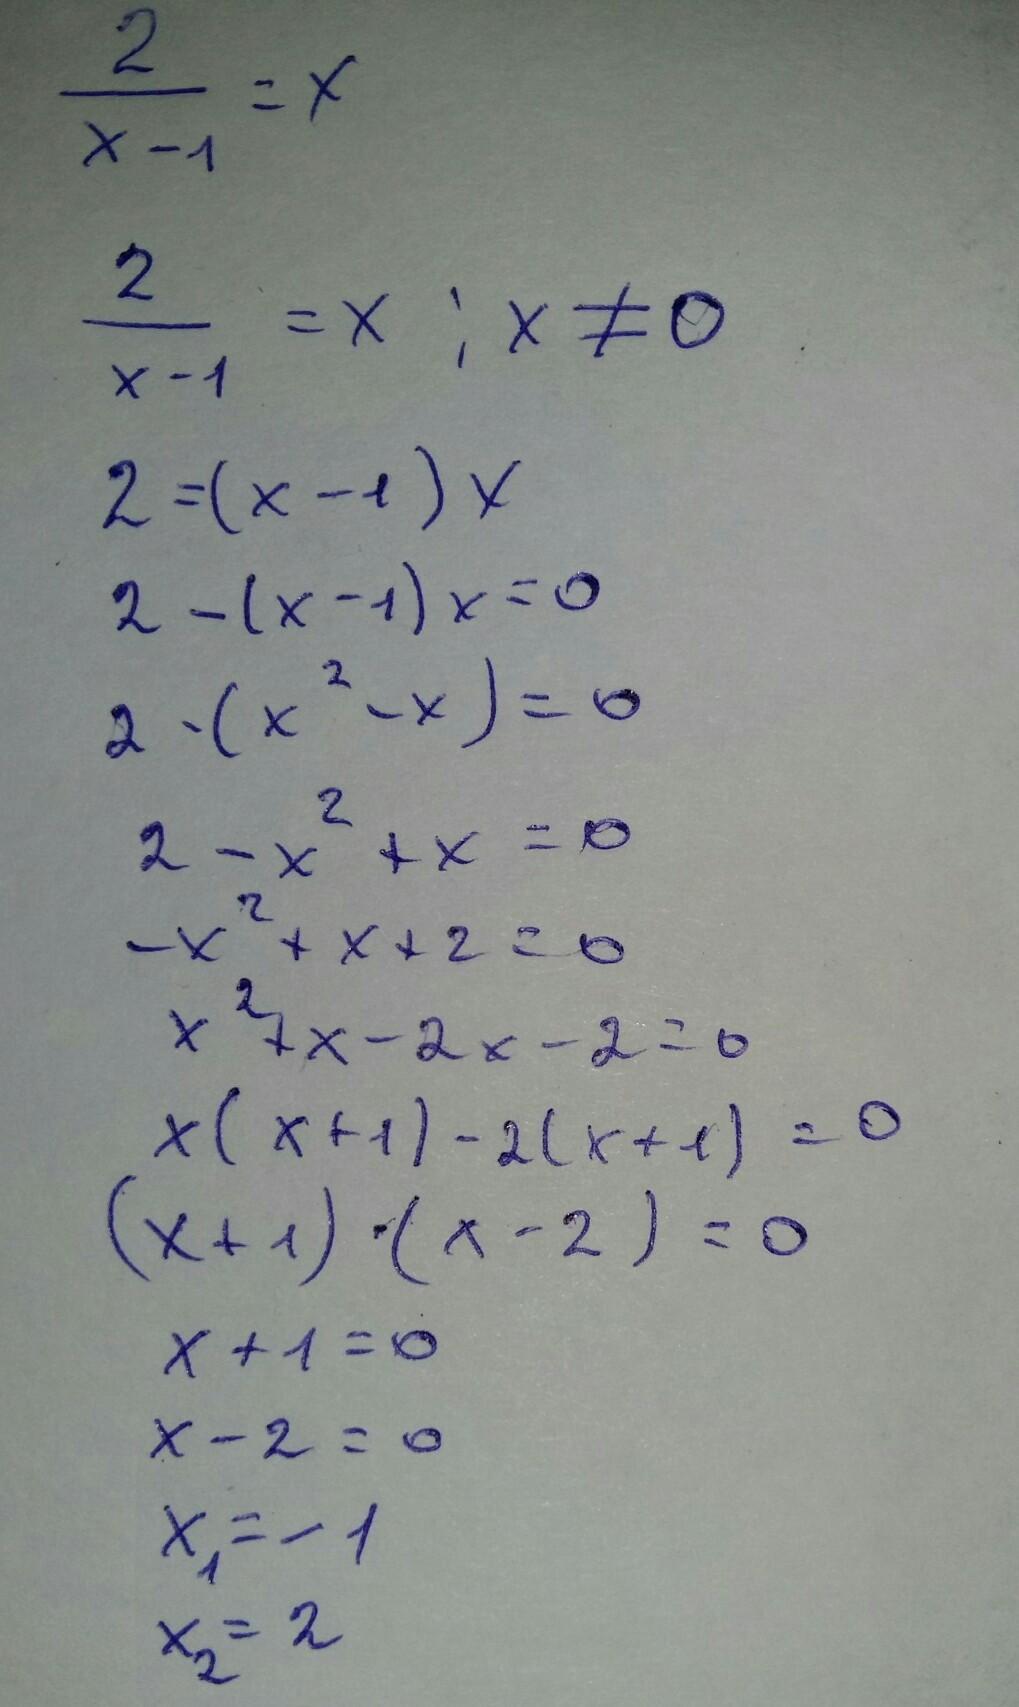 2/(x-1) = x
2/(x-1) = x ; x ≠ 0
2 = (x-1)x
2 - (x-1)x = 0
2 - (x² - x) = 0
2 - x² + x = 0
-x² + x + 2 = 0
x² + x - 2x - 2 = 0
x(x+1) - 2(x+1) = 0
(x+1)·(x-2) = 0
x + 1 = 0
x - 2 = 0
x₁ = -1
x₂ = 2